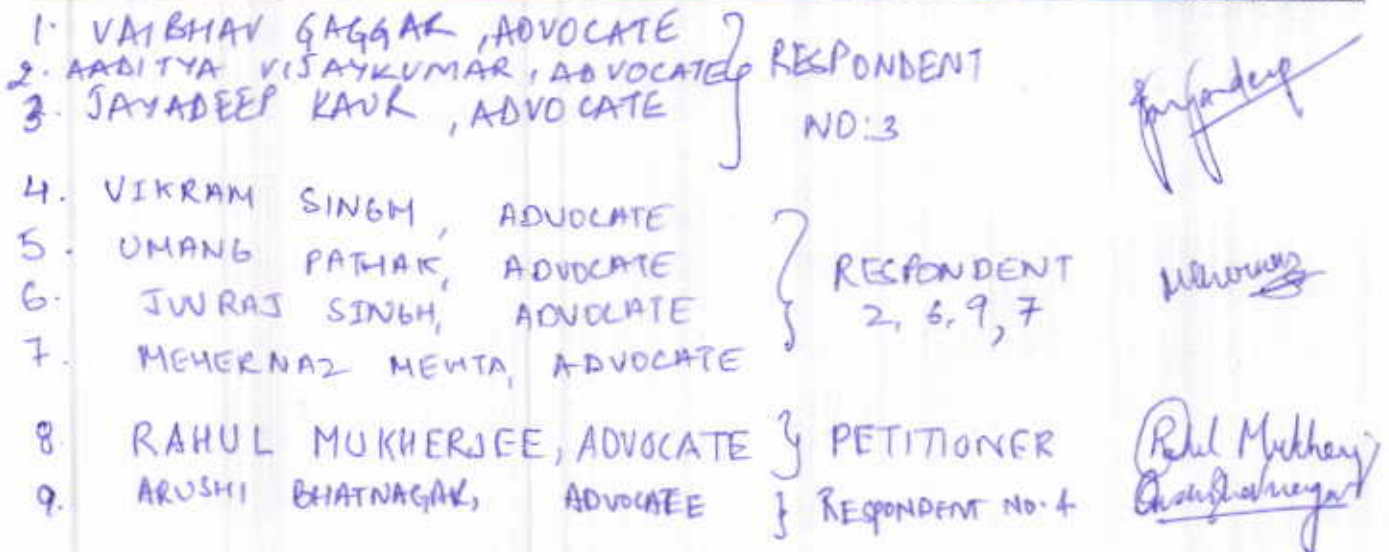 1. VAIBHAV GAGGAR, ADVOCATE
2. AADITYA VIJAYKUMAR, ADVOCATE
3. JAYADEEP KAUR, ADVOCATE
RESPONDENT
NO:3
4. VIKRAM SINGH, ADVOCATE
5. UMANG PATHAK, ADVOCATE
6. JUVRAJ SINGH, ADVOCATE
7. MEHERNAZ MEHTA, ADVOCATE
RESPONDENT
2, 6, 9, 7
8. RAHUL MUKHERJEE, ADVOCATE } PETITIONER Rahul Mukherj
9. ARUSHI BHATNAGAR, ADVOCATE } RESPONDENT NO. 4